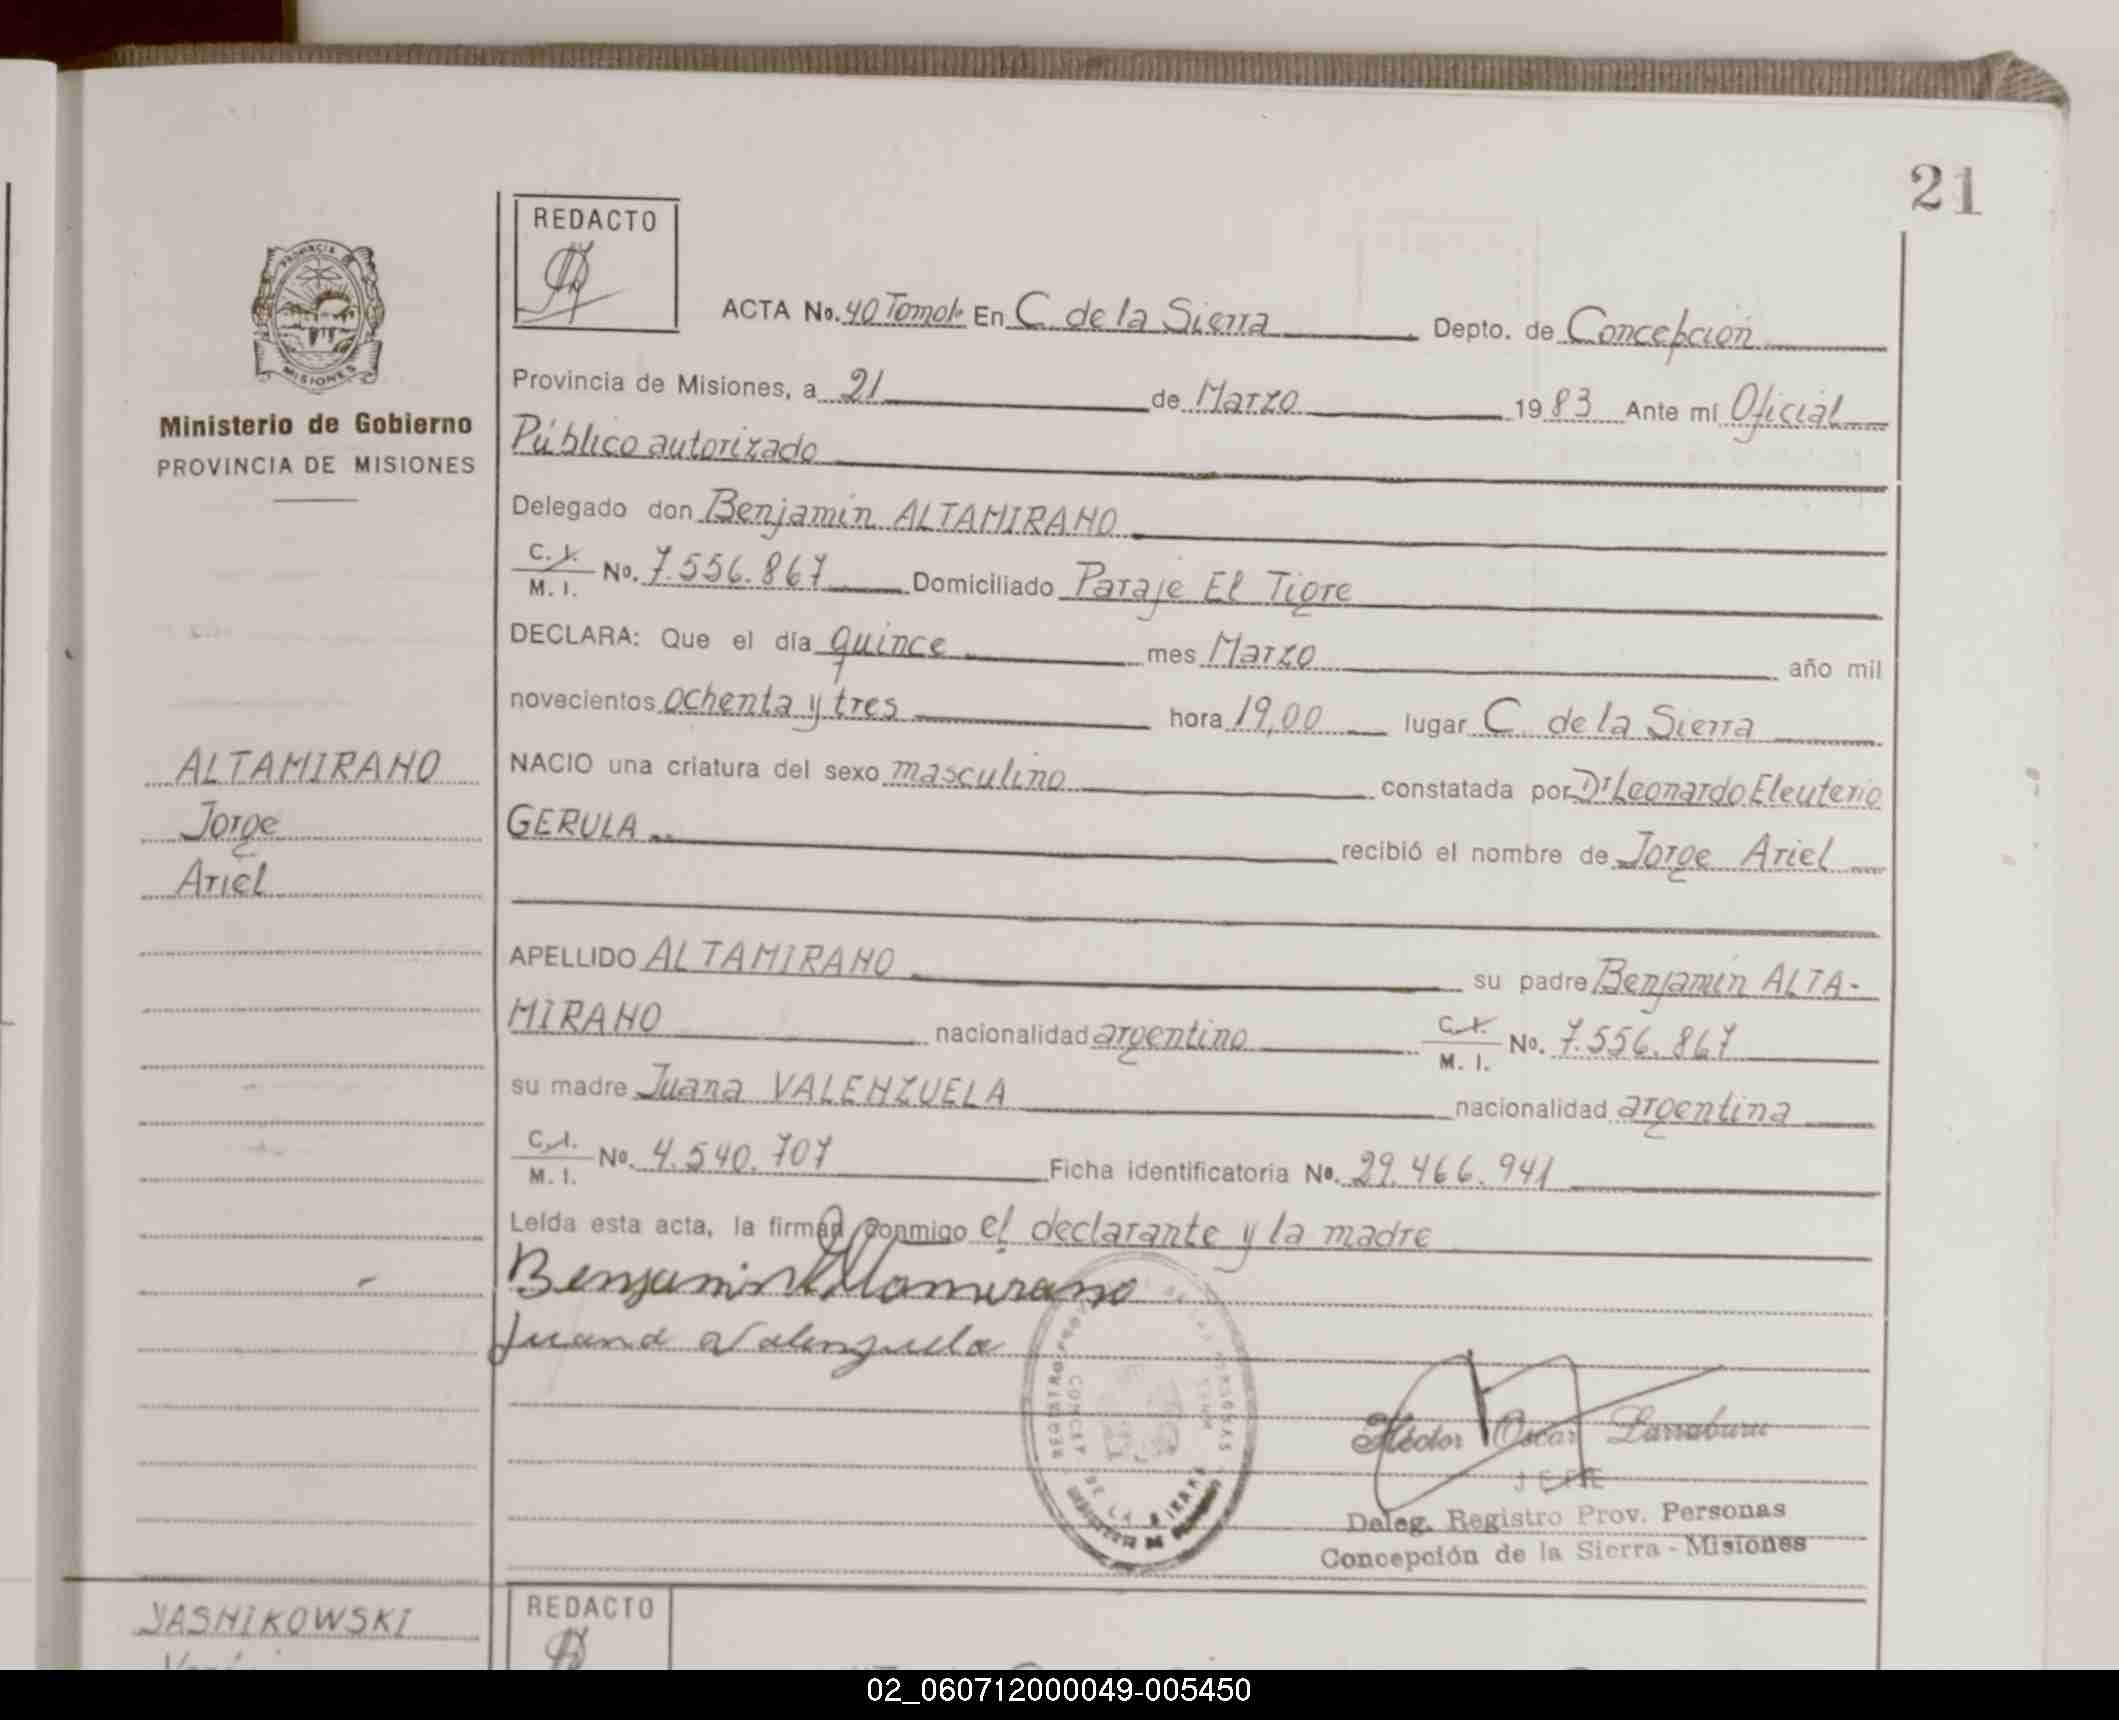 21
REDACTO
PROVINCIA DE
MISIONES
Ministerio de Gobierno
PROVINCIA DE MISIONES
ALTAMIRANO
Jorge
Ariel
ACTA No. 40 Tomo En C. de la Sierra Depto. de Concepción
Provincia de Misiones, a 21 de Marzo 1983 Ante mí Oficial
Público autorizado
Delegado don Benjamín ALTAMIRANO
C. I. / M. I. No. 7.556.867 Domiciliado Paraje El Tigre
DECLARA: Que el día quince mes Marzo año mil
novecientos ochenta y tres hora 19,00 lugar C. de la Sierra
NACIO una criatura del sexo masculino constatada por Dr Leonardo Eleuterio
GERULA recibió el nombre de Jorge Ariel
APELLIDO ALTAMIRANO su padre Benjamín ALTA-
MIRANO nacionalidad argentino C. I. / M. I. No. 7.556.867
su madre Juana VALENZUELA nacionalidad argentina
C. I. / M. I. No. 4.540.707 Ficha identificatoria No. 29.466.941
Leída esta acta, la firman conmigo el declarante y la madre
Benjamin Altamirano
Juana Valenzuela
Héctor Oscar Larraburu
JEFE
Deleg. Registro Prov. Personas
Concepción de la Sierra - Misiones
YASNIKOWSKI
REDACTO
02_060712000049-005450